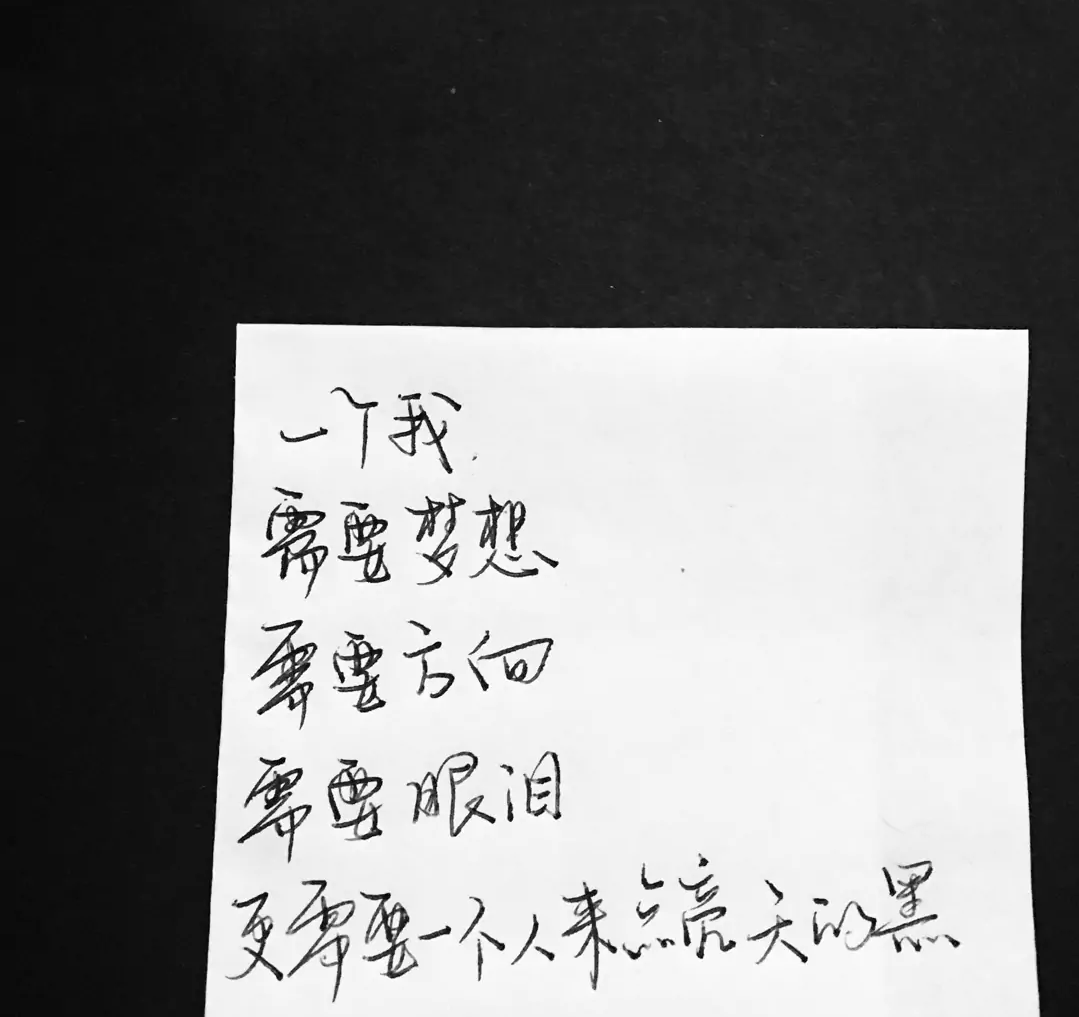 一个我
需要梦想
需要方向
需要眼泪
更需要一个人来点亮天的黑